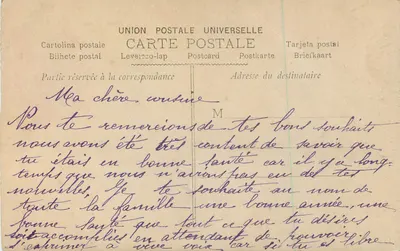 UNION POSTALE UNIVERSELLE
CARTE POSTALE
Cartolina postale Tarjeta postal
Bilhete postal Levelező-lap Postcard Postkarte Briefkaart
Partie réservée à la correspondance Adresse du destinataire
M
Ma chère cousine
Nous te remercions de tes bons souhaits
nous avons été très content de savoir que
tu étais en bonne santé car il y a long-
temps que nous n'avions pas eu des tes
nouvelles, Je te souhaite au nom de
toute la famille une bonne année, une
bonne santé que tout ce que tu désires
soit accomplies en attendant de pouvoir
venir car si tu es libre